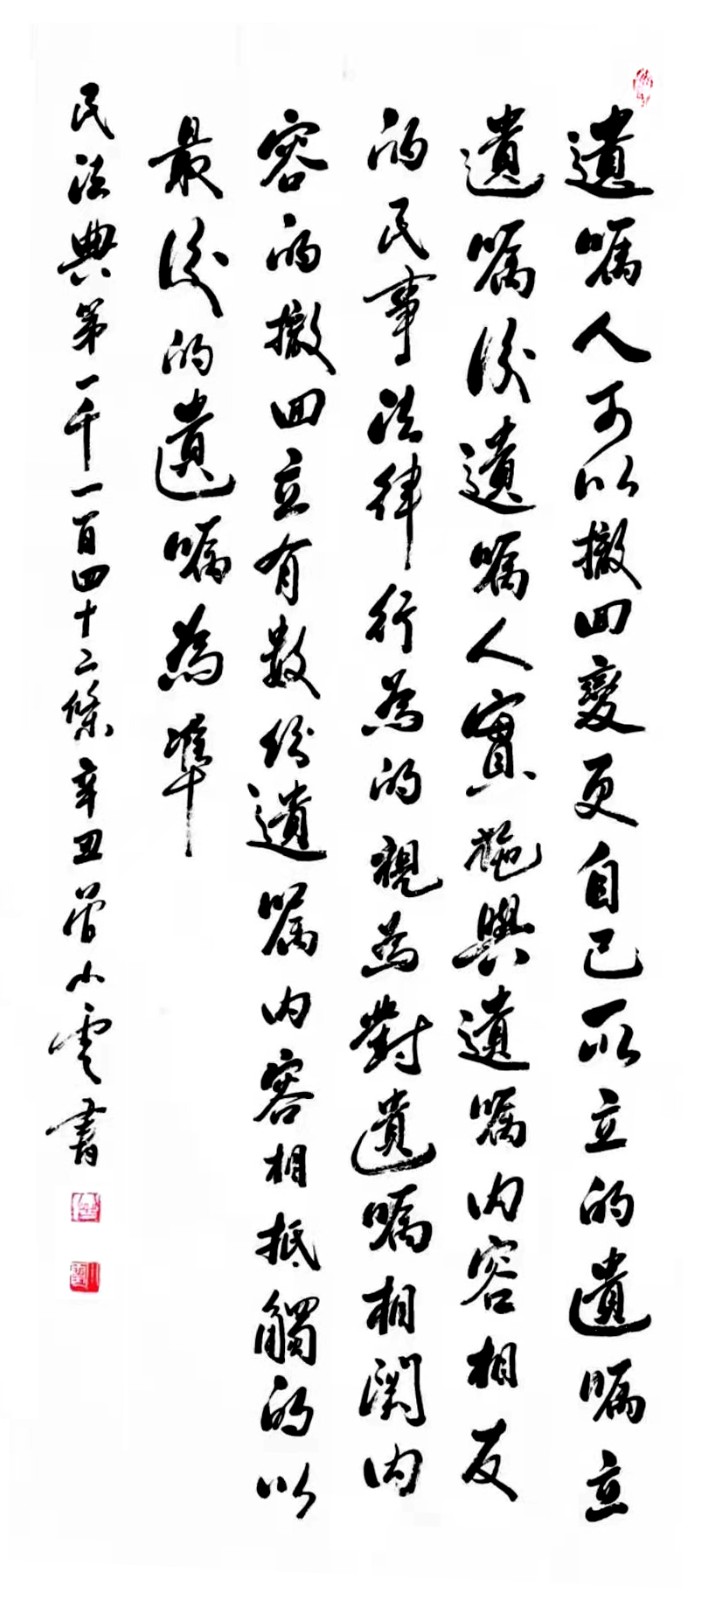 遺嘱人可以撤回變更自己所立的遺嘱立
遺嘱後遺嘱人實施與遺嘱内容相反
的民事法律行為的視為對遺嘱相関内
容的撤回立有數份遺嘱内容相抵觸的以
最後的遺嘱為準
民法典第一千一百四十二條辛丑曾小雲書